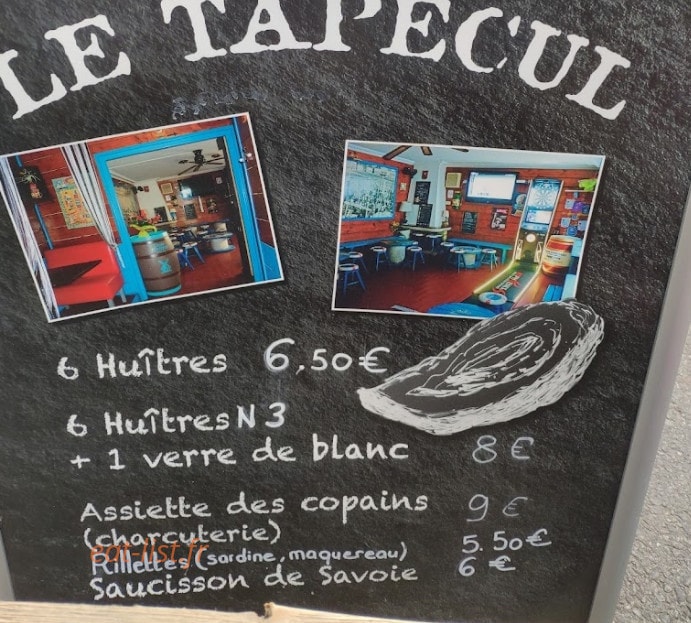 LE TAPECUL
6 Huîtres 6,50€
6 Huîtres N 3
+ 1 verre de blanc 8 €
Assiette des copains 9 €
(charcuterie)
Rillettes (sardine, maquereau) 5.50€
Saucisson de Savoie 6 €
eat-list.fr